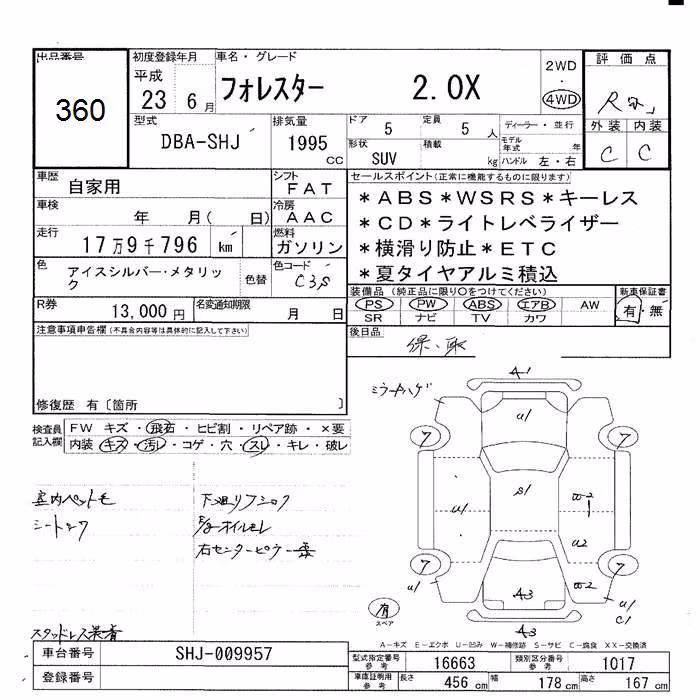 出品番号 初度登録年月 車名・グレード 評価点
360
平成
23 6月 フォレスター 2.0X
2WD
・
4WD
型式 排気量 ドア 定員 ディーラー・並行 外装 内装
DBA-SHJ 1995 CC 5 5人
形状 積載 モデル年式 年
SUV kg ハンドル 左・右 C C
車歴 シフト セールスポイント(正常に機能するものに限ります)
自家用 FAT
*ABS*WSRS*キーレス
車検 冷房
年 月( 日) AAC
*CD*ライトレベライザー
走行 燃料
17万9千796 km ガソリン
*横滑り防止*ETC
色 色替 色コード
アイスシルバー・メタリック C3S
*夏タイヤアルミ積込
R券 名変通知期限 装備品(純正品に限り○をつけてください) 新車保証書
13,000円 月 日
PS PW ABS エアB AW 有・無
SR ナビ TV カワ
注意事項申告欄(不具合内容等は具体的に記入して下さい) 後日品
保、取
修復歴 有〔箇所 〕
ミラーハゲ A1
検査員記入欄 FW キズ・飛石・ヒビ割・リペア跡・×要
内装 キズ・汚レ・コゲ・穴・スレ・キレ・破レ
U1
7 7
S1
U1
W2
U2
W2
7 7
A3
U1 U1
C1
A3
室内ペット毛 下廻りフシロク
オイルモレ
右センターピラー
スタッドレス装着
有
スペア
A-キズ E-エクボ U-凹み W-補修跡 S-サビ C-腐食 XX-交換済
車台番号 SHJ-009957
型式指定番号 参考 16663 類別区分番号 参考 1017
登録番号
車庫証明用 参考 長さ 456 cm 幅 178 cm 高さ 167 cm